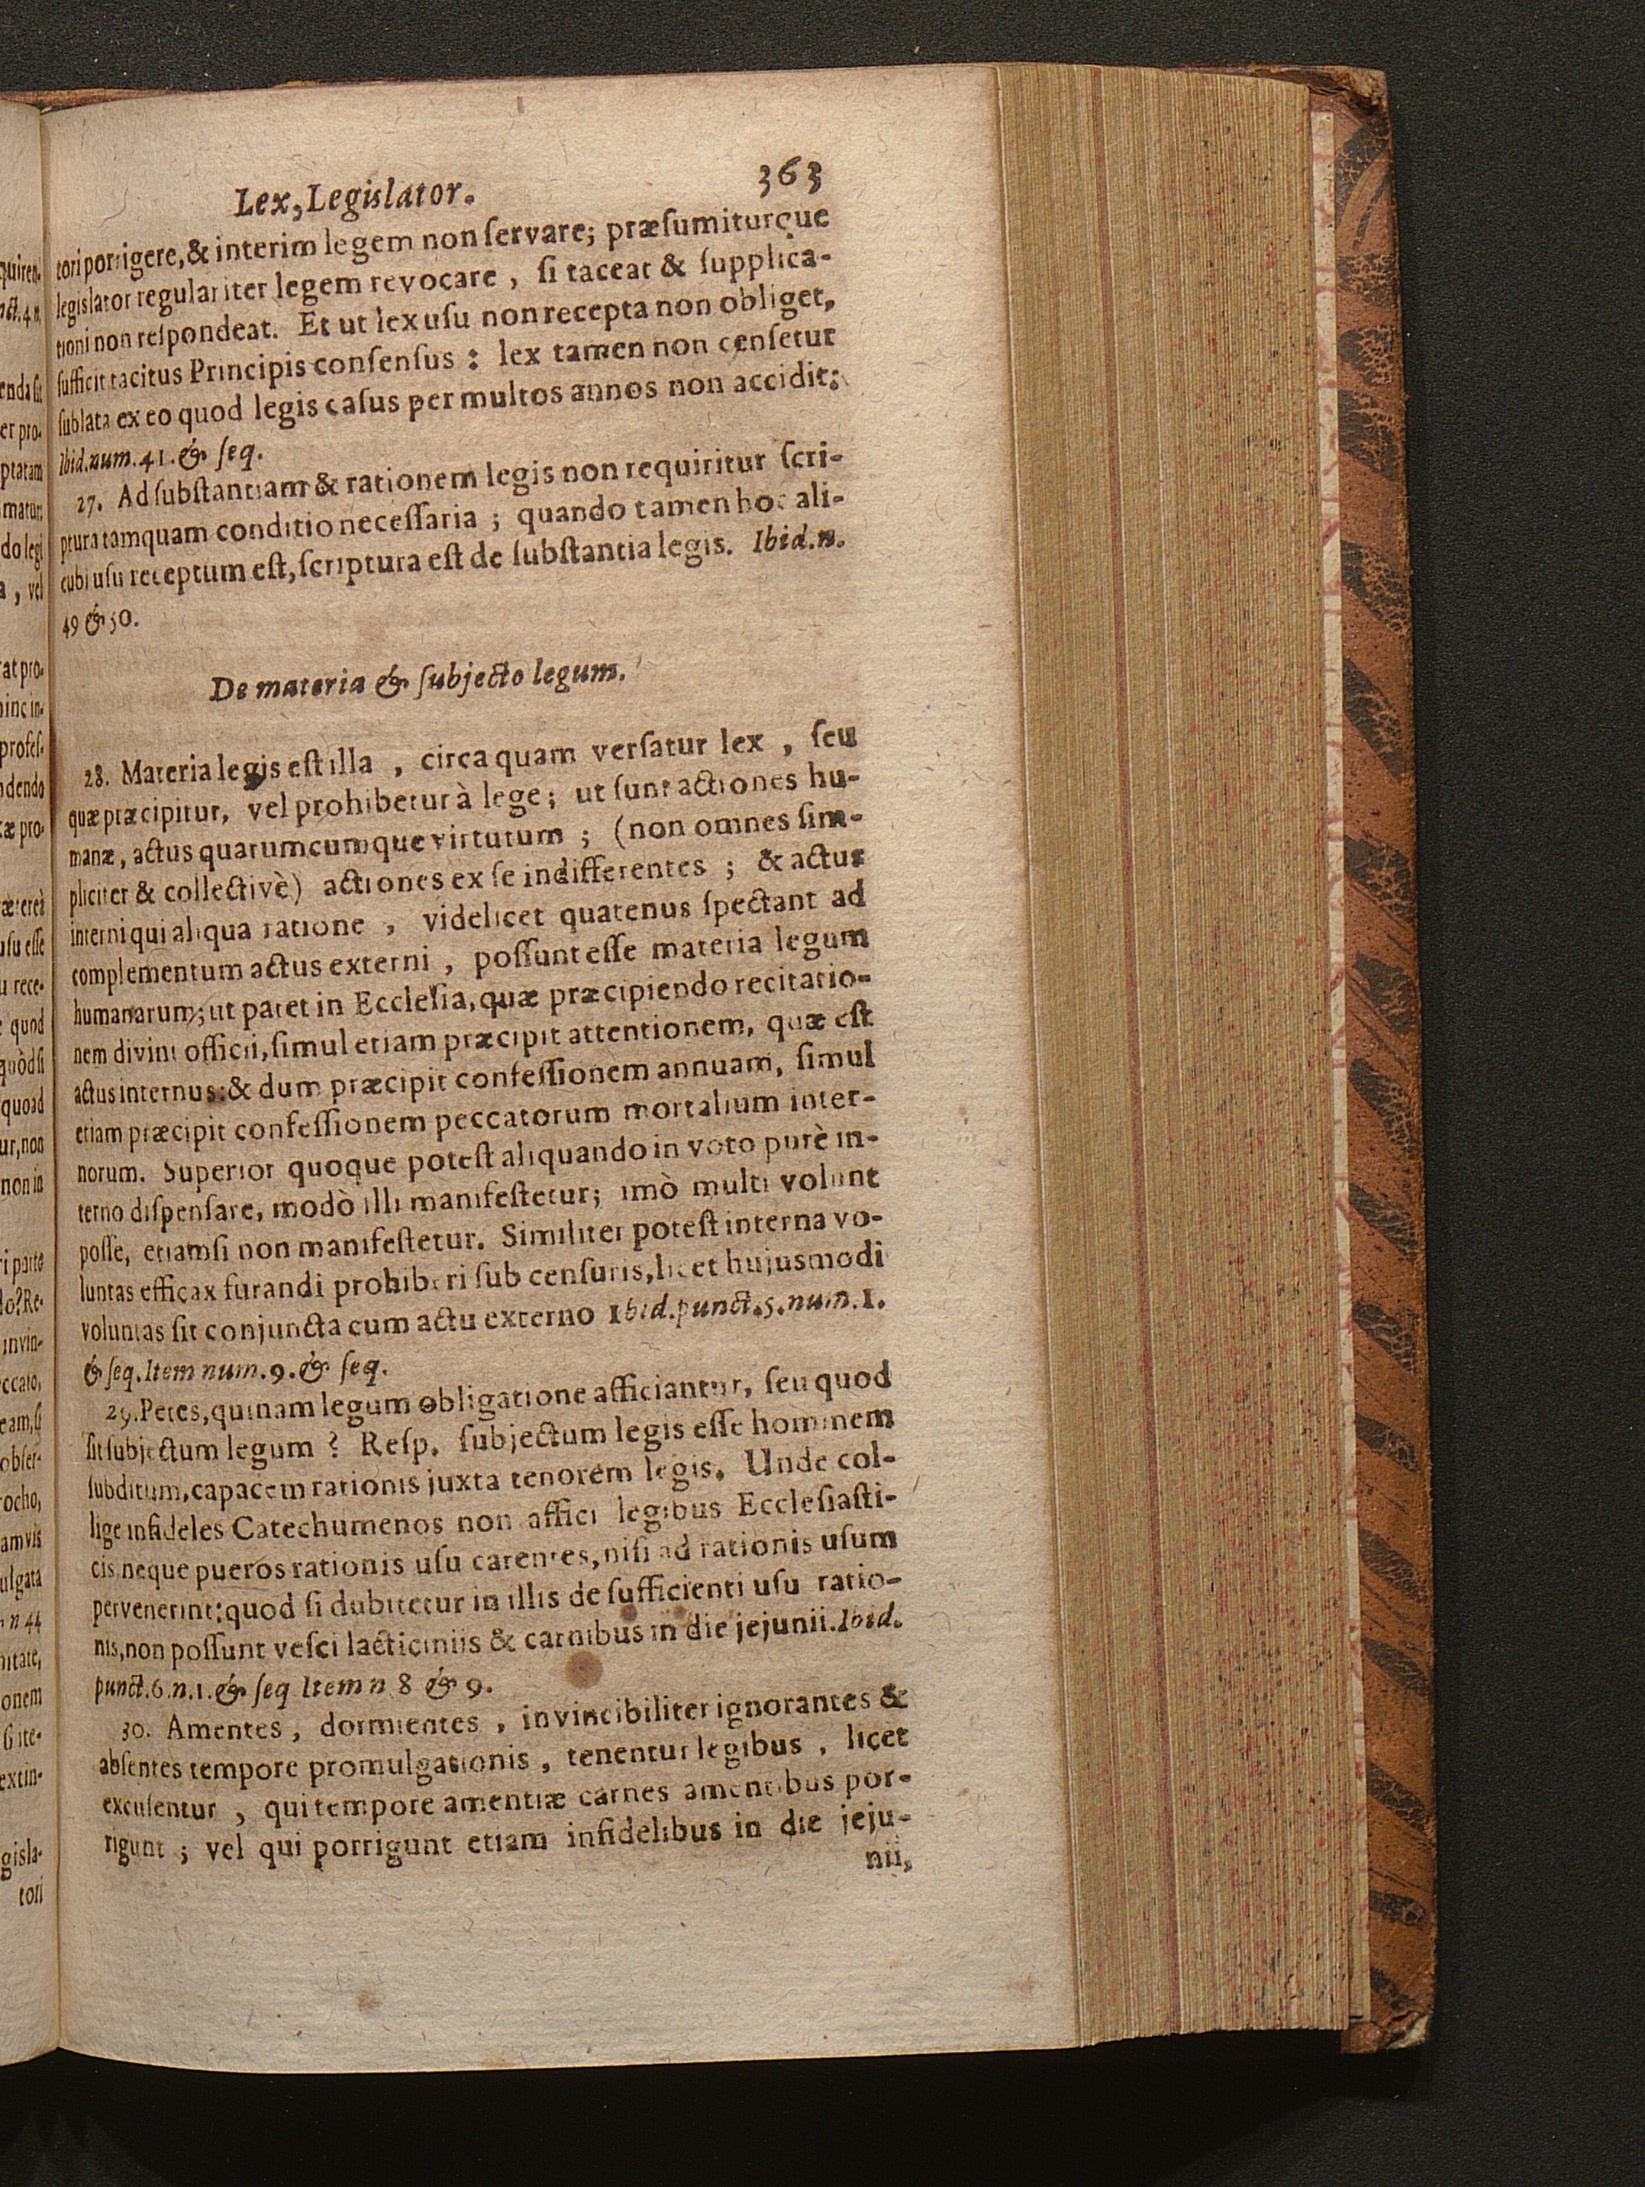 Lex, Legislator. 363
tori porrigere, & interim legem non ſervare; præſumiturque
legislator regulariter legem revocare , ſi taceat & ſupplica-
tioni non reſpondeat. Et ut lex uſu non recepta non obliget,
ſufficit tacitus Principis conſenſus : lex tamen non cenſetur
ſublata ex eo quod legis caſus per multos annos non accidit:
Ibid. num. 41. & ſeq.
27. Ad ſubſtantiam & rationem legis non requiritur ſcri-
ptura tamquam conditio neceſſaria ; quando tamen hoc ali-
cubi uſu receptum eſt, ſcriptura eſt de ſubſtantia legis. Ibid. n.
49 & 50.
De materia & ſubjecto legum.
28. Materia legis eſt illa , circa quam verſatur lex , ſeu
quæ præcipitur, vel prohibetur à lege ; ut ſunt actiones hu-
manæ, actus quarumcumque virtutum ; (non omnes ſim-
pliciter & collectivè) actiones ex ſe indifferentes ; & actus
interni qui aliqua ratione , videlicet quatenus ſpectant ad
complementum actus externi , poſſunt eſſe materia legum
humanarum; ut patet in Eccleſia, quæ præcipiendo recitatio-
nem divini officii, ſimul etiam præcipit attentionem, quæ eſt
actus internus: & dum præcipit confeſſionem annuam, ſimul
etiam præcipit confeſſionem peccatorum mortalium inter-
norum. Superior quoque poteſt aliquando in voto purè in-
terno diſpenſare, modò illi manifeſtetur; imò multi volunt
poſſe, etiamſi non manifeſtetur. Similiter poteſt interna vo-
luntas efficax furandi prohiberi ſub cenſuris, licet hujusmodi
voluntas ſit conjuncta cum actu externo Ibid. punct. 5. num. 1.
& ſeq. Item num. 9. & ſeq.
29. Petes, quinam legum obligatione afficiantur, ſeu quod
ſit ſubjectum legum ? Reſp. ſubjectum legis eſſe hominem
ſubditum, capacem rationis juxta tenorem legis. Unde col-
lige infideles Catechumenos non affici legibus Eccleſiaſti-
cis neque pueros rationis uſu carentes, niſi ad rationis uſum
pervenerint: quod ſi dubitetur in illis de ſufficienti uſu ratio-
nis, non poſſunt veſci lacticiniis & carnibus in die jejunii. Ibid.
punct. 6. n. 1. & ſeq Item n 8 & 9.
30. Amentes , dormientes , invincibiliter ignorantes &
abſentes tempore promulgationis , tenentur legibus , licet
excuſentur , qui tempore amentiæ carnes amentibus por-
rigunt ; vel qui porrigunt etiam infidelibus in die jeju-
nii,